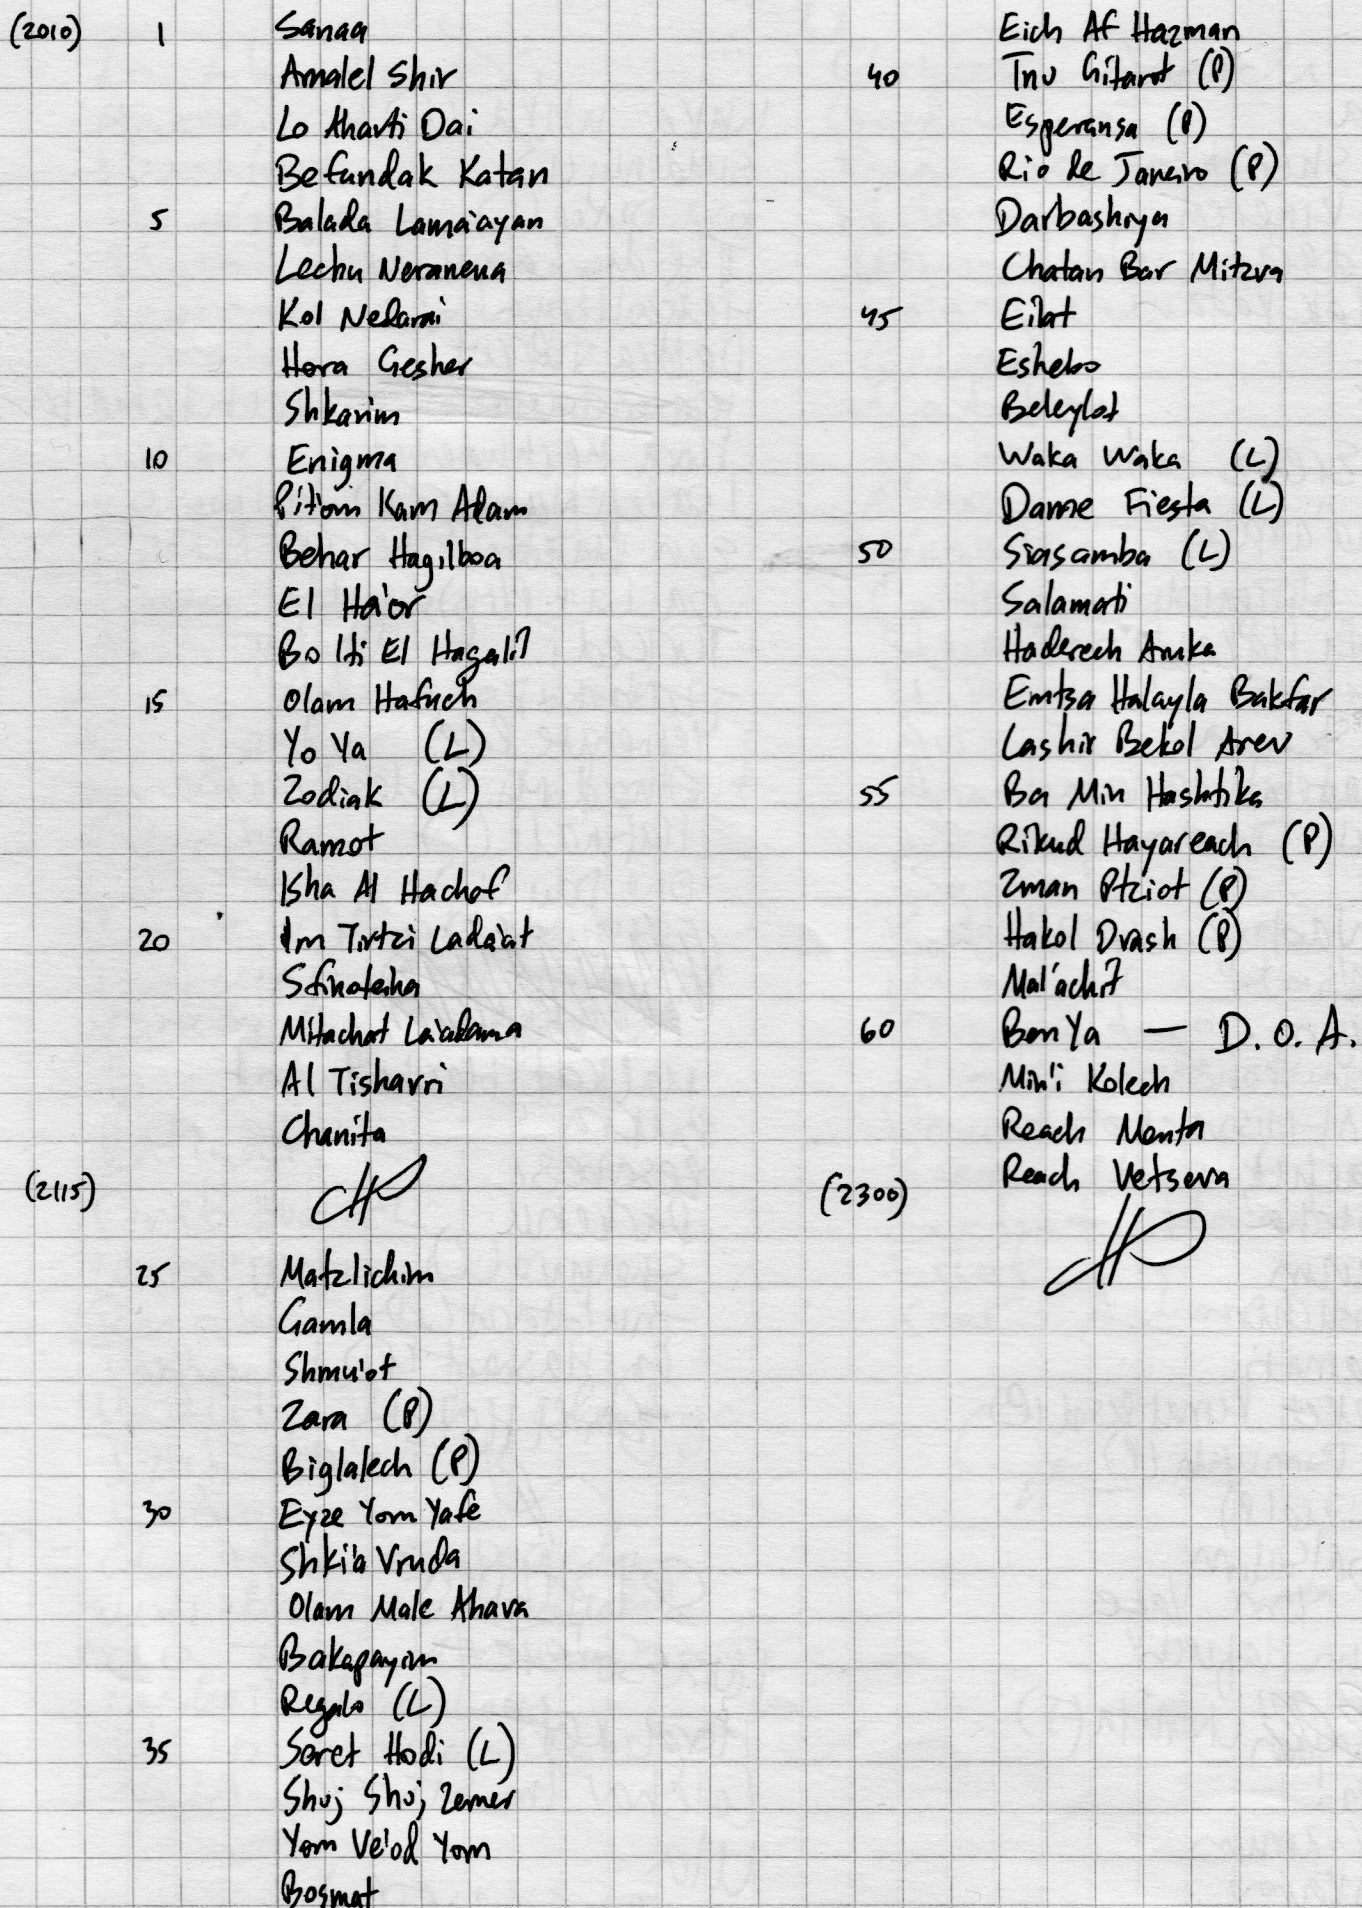 (2010) 1 Sanaa
Amalel Shir
Lo Aharti Dai
Befundak Katan
5 Balada Lama'ayan
Lechu Neranena
Kol Nedarai
Hora Gesher
Shkarim
10 Enigma
Pit'om Kam Adam
Behar Hagilboa
El Ha'or
Bo Iti El Hagalil
15 Olam Hafuch
Yo Ya (L)
Zodiak (L)
Ramot
Isha Al Hachof
20 Im Tirtzi Lada'at
Sfinoteiha
Mitachat La'adama
Al Tisharri
Chanita
(2115)
25 Matzlichim
Gamla
Shmu'ot
Zara (P)
Biglalech (P)
30 Eyze Yom Yafe
Shki'a Vruda
Olam Male Ahava
Bakapayim
Regalo (L)
35 Seret Hodi (L)
Shuj Shuj Zemer
Yom Ve'od Yom
Bosmat
Eich Af Hazman
40 Tnu Gitarot (P)
Esperansa (P)
Rio de Janeiro (P)
Darbashiya
Chatan Bar Mitzva
45 Eilat
Eshebo
Beleylot
Waka Waka (L)
Dame Fiesta (L)
50 Siasamba (L)
Salamati
Haderech Aruka
Emtsa Halayla Bakfar
Lashir Bekol Arev
55 Ba Min Hashtika
Rikud Hayareach (P)
Zman Ptziot (P)
Hakol Drash (P)
Mal'achit
60 Bon Ya — D.O.A.
Min'i Kolech
Reach Menta
Reach Vetseva
(2300)